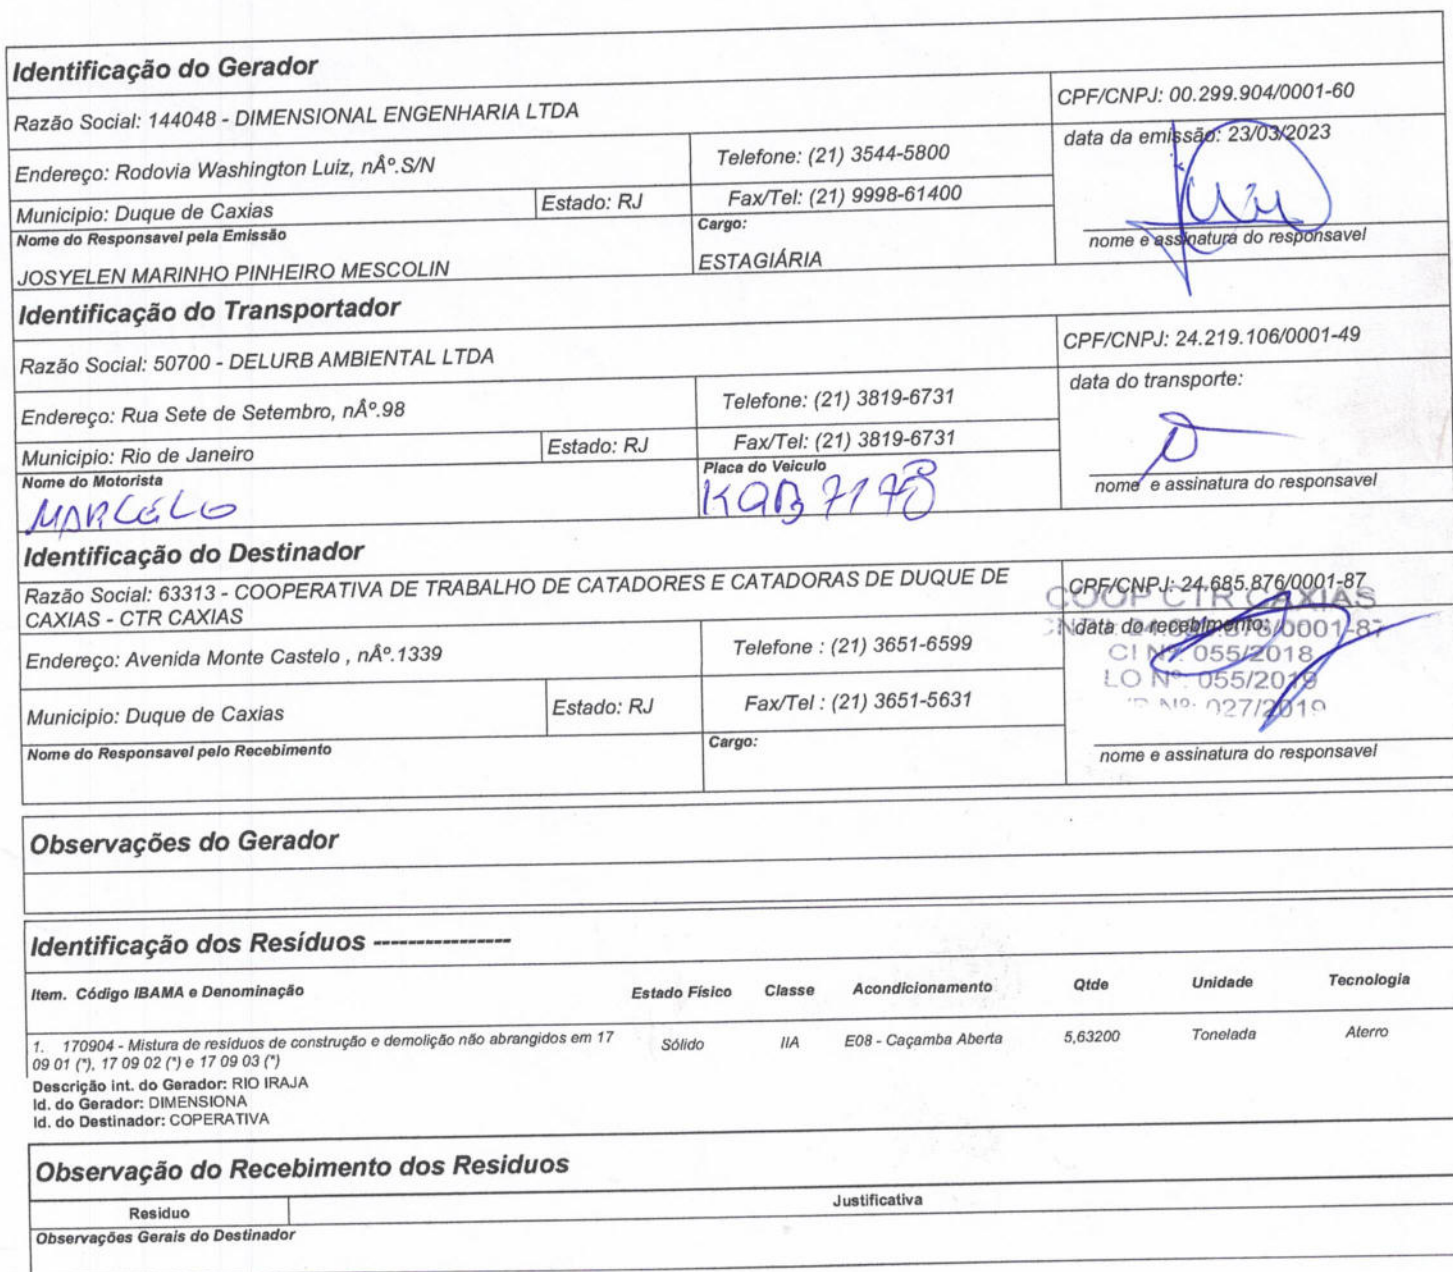 Identificação do Gerador
Razão Social: 144048 - DIMENSIONAL ENGENHARIA LTDA
CPF/CNPJ: 00.299.904/0001-60
Endereço: Rodovia Washington Luiz, nÂº.S/N
Telefone: (21) 3544-5800
data da emissão: 23/03/2023
Municipio: Duque de Caxias
Estado: RJ
Fax/Tel: (21) 9998-61400
Nome do Responsavel pela Emissão
Cargo:
nome e assinatura do responsavel
JOSYELEN MARINHO PINHEIRO MESCOLIN
ESTAGIÁRIA
Identificação do Transportador
Razão Social: 50700 - DELURB AMBIENTAL LTDA
CPF/CNPJ: 24.219.106/0001-49
Endereço: Rua Sete de Setembro, nÂº.98
Telefone: (21) 3819-6731
data do transporte:
Municipio: Rio de Janeiro
Estado: RJ
Fax/Tel: (21) 3819-6731
Nome do Motorista
Placa do Veiculo
nome e assinatura do responsavel
MARCELO
Identificação do Destinador
Razão Social: 63313 - COOPERATIVA DE TRABALHO DE CATADORES E CATADORAS DE DUQUE DE
CAXIAS - CTR CAXIAS
CPF/CNPJ: 24.685.876/0001-87
COOP CTR CAXIAS
data do recebimento:
CI Nº: 055/2018
LO Nº: 055/2019
Nº: 027/2019
Endereço: Avenida Monte Castelo , nÂº.1339
Telefone : (21) 3651-6599
Municipio: Duque de Caxias
Estado: RJ
Fax/Tel : (21) 3651-5631
Nome do Responsavel pelo Recebimento
Cargo:
nome e assinatura do responsavel
Observações do Gerador
Identificação dos Resíduos ----------------
Item. Código IBAMA e Denominação Estado Físico Classe Acondicionamento Qtde Unidade Tecnologia
1. 170904 - Mistura de resíduos de construção e demolição não abrangidos em 17 Sólido IIA E08 - Caçamba Aberta 5,63200 Tonelada Aterro
09 01 (*), 17 09 02 (*) e 17 09 03 (*)
Descrição int. do Gerador: RIO IRAJA
Id. do Gerador: DIMENSIONA
Id. do Destinador: COPERATIVA
Observação do Recebimento dos Residuos
Residuo Justificativa
Observações Gerais do Destinador